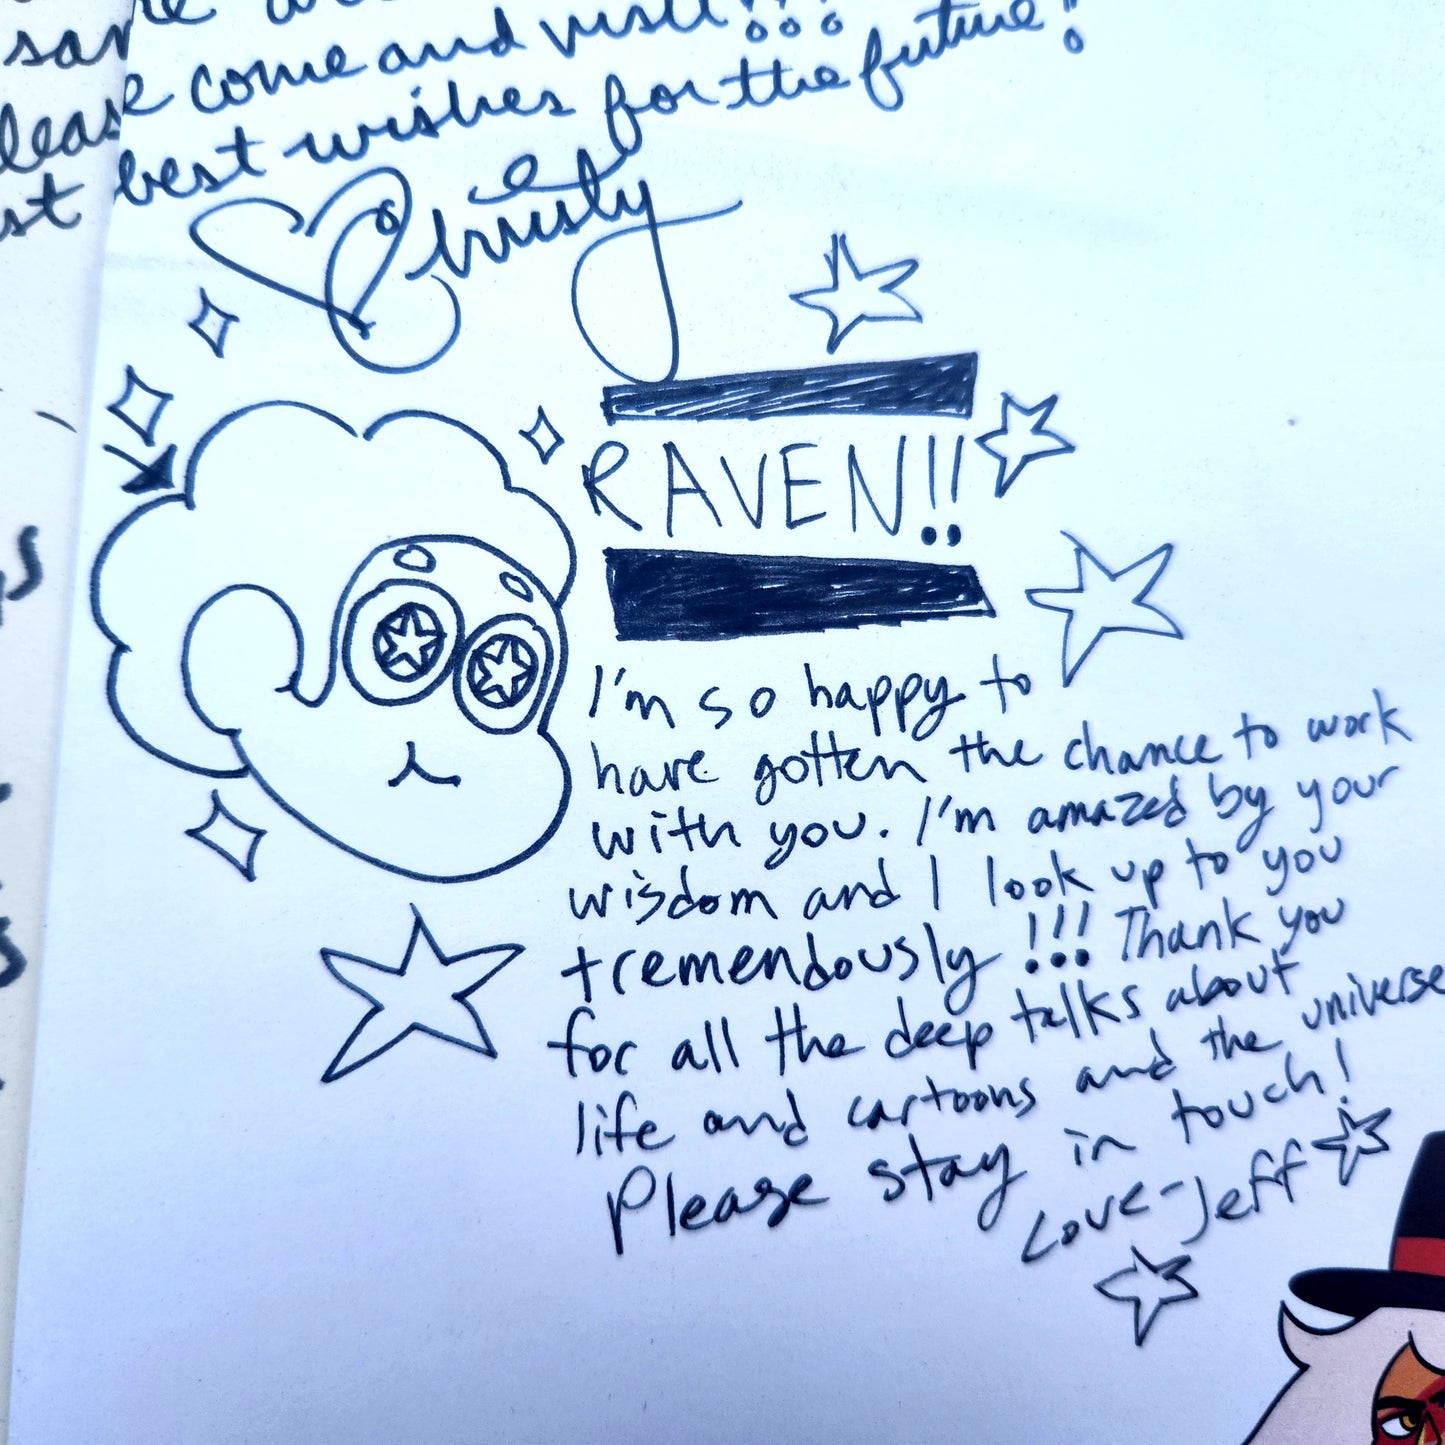 come and visit!!!
best wishes for the future!
Christy
RAVEN!!
I'm so happy to
have gotten the chance to work
with you. I'm amazed by your
wisdom and I look up to you
tremendously!!! Thank you
for all the deep talks about
life and cartoons and the universe
Please stay in touch!
Love-Jeff